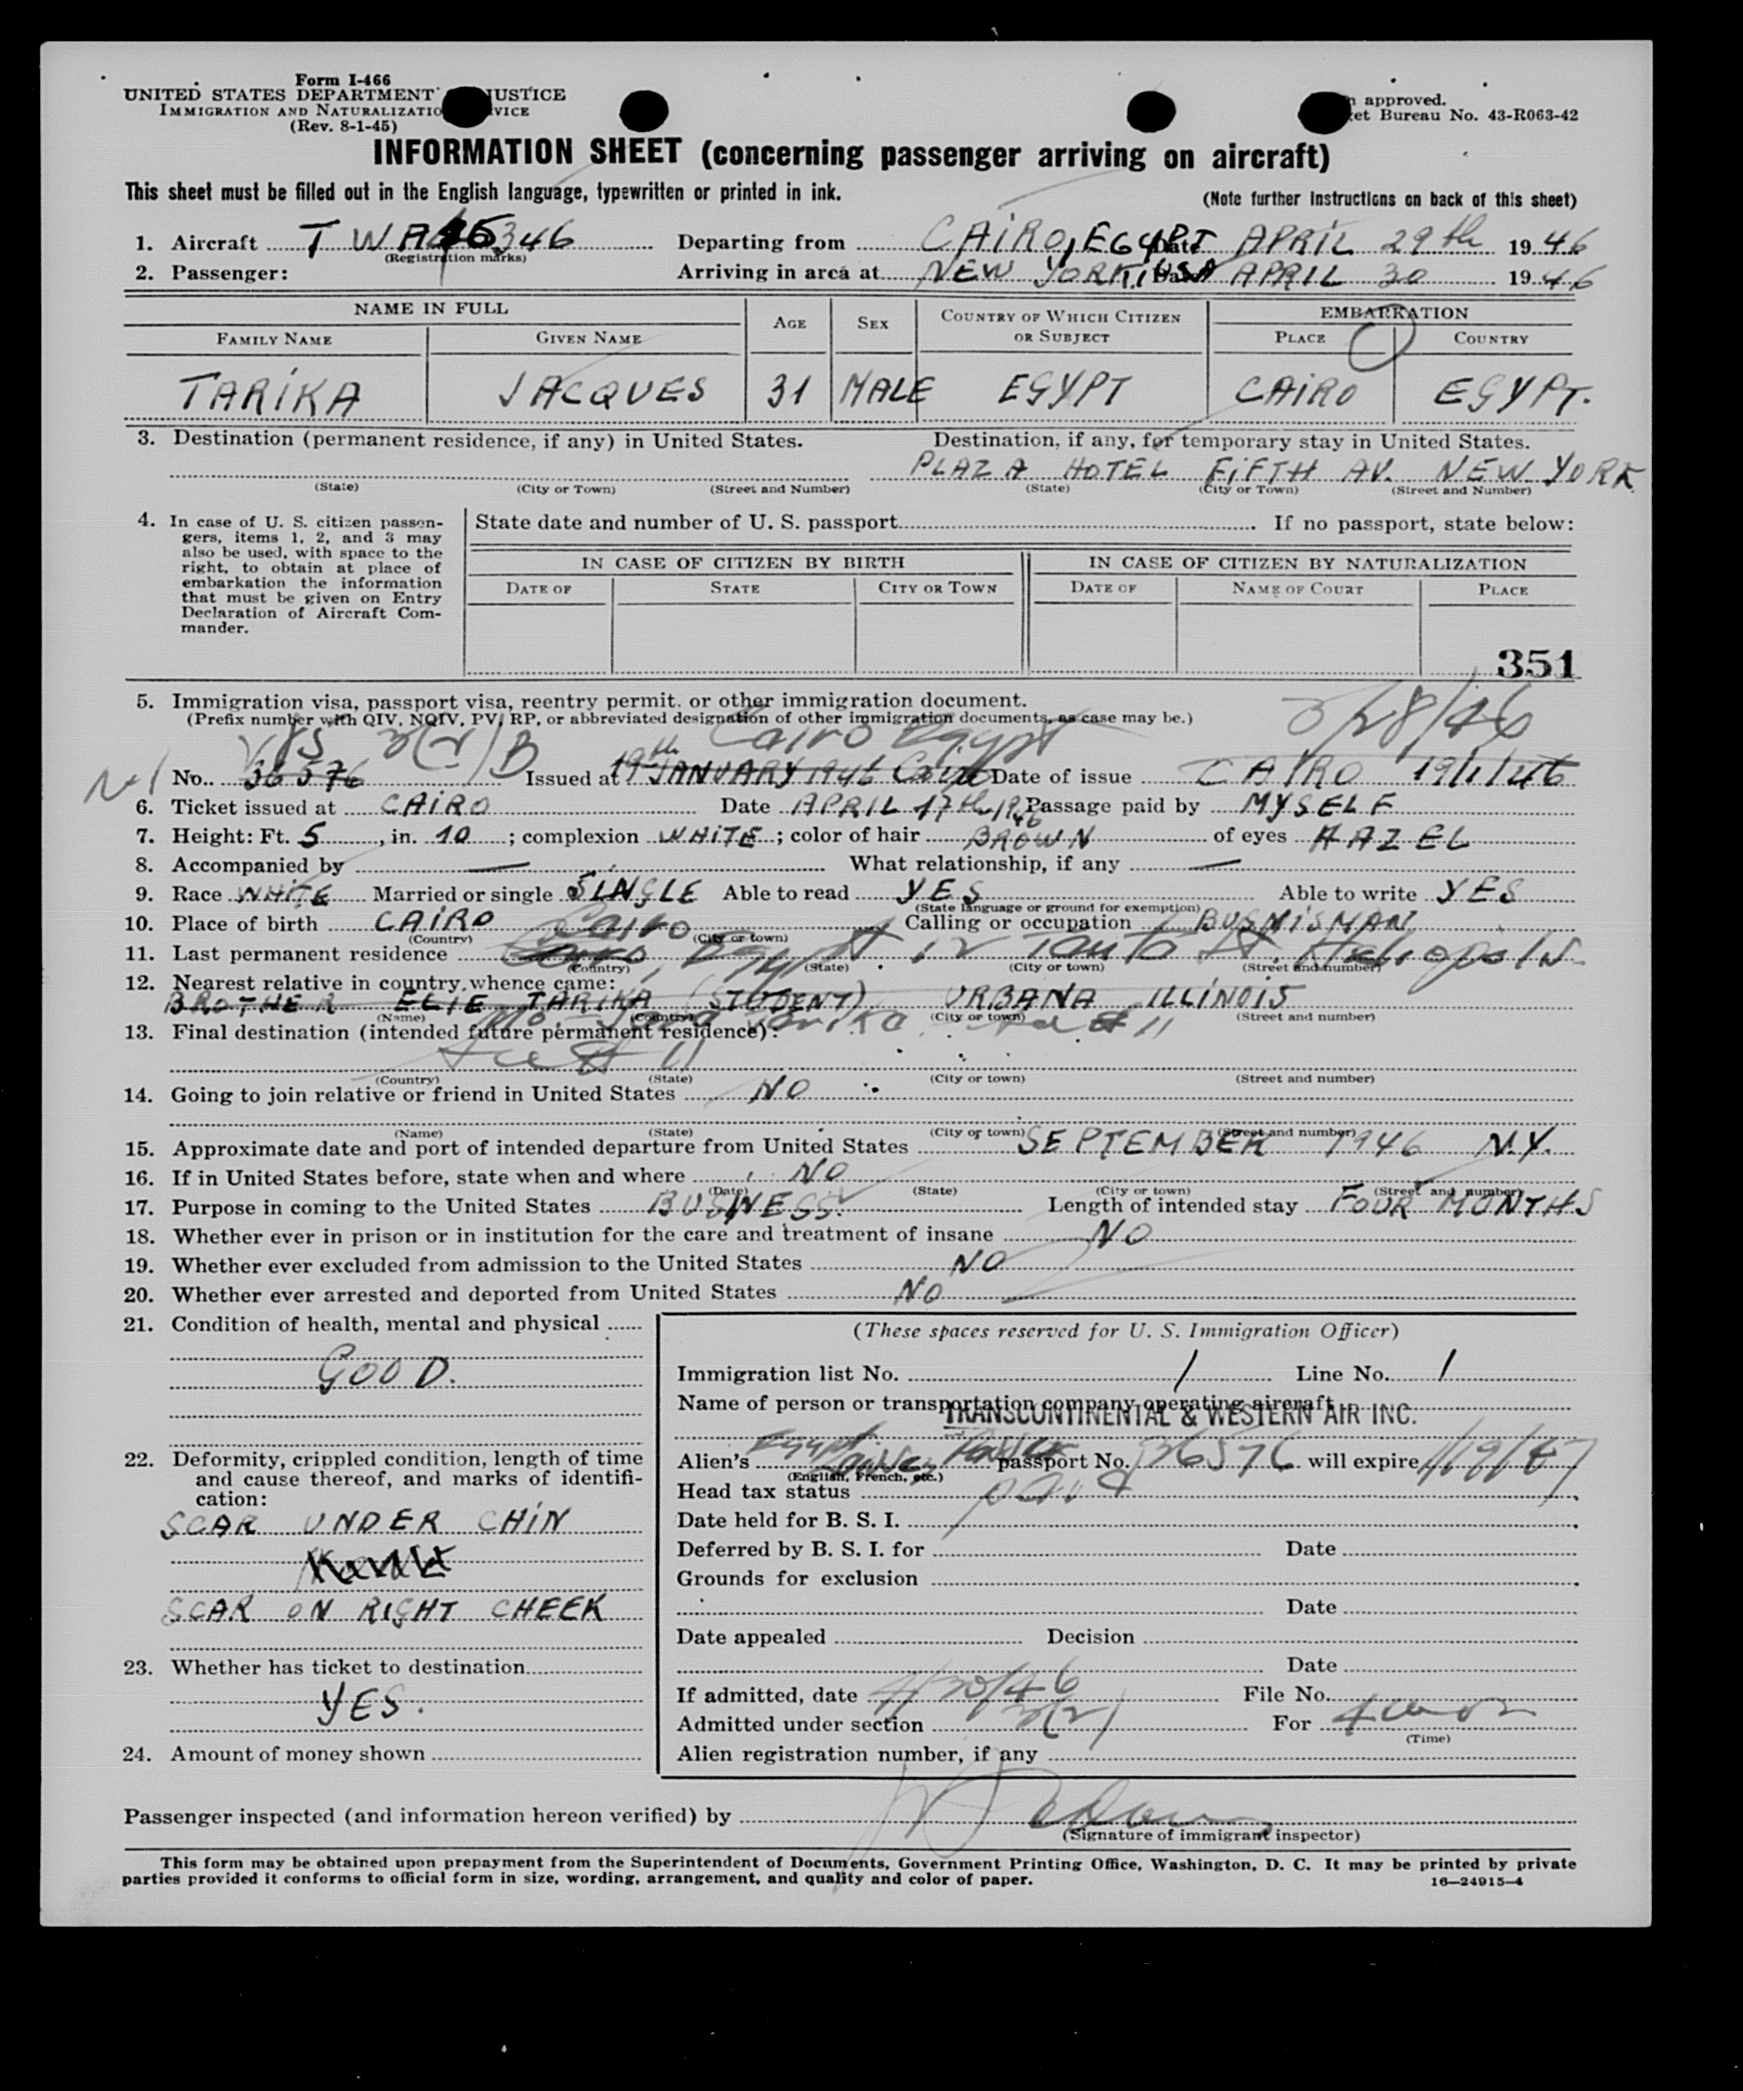 Form I-466
UNITED STATES DEPARTMENT JUSTICE
IMMIGRATION AND NATURALIZATIO VICE
(Rev. 8-1-45)
approved.
et Bureau No. 43-R063-42
INFORMATION SHEET (concerning passenger arriving on aircraft)
This sheet must be filled out in the English language, typewritten or printed in ink.
(Note further instructions on back of this sheet)
1. Aircraft T W A 346 Departing from CAIRO, EGYPT Date APRIL 29th 1946
(Registration marks)
2. Passenger: Arriving in area at NEW YORK, USA Date APRIL 30 1946
NAME IN FULL AGE SEX COUNTRY OF WHICH CITIZEN OR SUBJECT EMBARKATION
FAMILY NAME GIVEN NAME PLACE COUNTRY
TARIKA JACQUES 31 MALE EGYPT CAIRO EGYPT.
3. Destination (permanent residence, if any) in United States. Destination, if any, for temporary stay in United States.
PLAZA HOTEL FIFTH AV. NEW YORK
(State) (City or Town) (Street and Number) (State) (City or Town) (Street and Number)
4. In case of U. S. citizen passengers, items 1, 2, and 3 may also be used, with space to the right, to obtain at place of embarkation the information that must be given on Entry Declaration of Aircraft Commander.
State date and number of U. S. passport If no passport, state below:
IN CASE OF CITIZEN BY BIRTH IN CASE OF CITIZEN BY NATURALIZATION
DATE OF STATE CITY OR TOWN DATE OF NAME OF COURT PLACE
351
5. Immigration visa, passport visa, reentry permit. or other immigration document.
(Prefix number with QIV, NQIV, PV, RP, or abbreviated designation of other immigration documents, as case may be.)
3(2) B Cairo Egypt 3/28/46
No. 36576 Issued at 19th JANUARY 1946 Date of issue CAIRO 19/1/46
6. Ticket issued at CAIRO Date APRIL 17th 1946 Passage paid by MYSELF
7. Height: Ft. 5, in. 10; complexion WHITE; color of hair BROWN of eyes HAZEL
8. Accompanied by — What relationship, if any —
9. Race WHITE Married or single SINGLE Able to read YES Able to write YES
(State language or ground for exemption)
10. Place of birth CAIRO Cairo Calling or occupation BUSNISMAN
(Country) (City or town)
11. Last permanent residence Cairo, Egypt 12 Tanta St. Heliopolis
(Country) (State) (City or town) (Street and number)
12. Nearest relative in country whence came:
BROTHER ELIE TARIKA (STUDENT) URBANA ILLINOIS
(Name) (Country) (City or town) (Street and number)
13. Final destination (intended future permanent residence):
(Country) (State) (City or town) (Street and number)
14. Going to join relative or friend in United States NO
(Name) (State) (City or town) (Street and number)
15. Approximate date and port of intended departure from United States SEPTEMBER 1946 N.Y.
16. If in United States before, state when and where NO
(Date) (State) (City or town) (Street and number)
17. Purpose in coming to the United States BUSINESS. Length of intended stay FOUR MONTHS
18. Whether ever in prison or in institution for the care and treatment of insane NO
19. Whether ever excluded from admission to the United States NO
20. Whether ever arrested and deported from United States NO
21. Condition of health, mental and physical
GOOD.
22. Deformity, crippled condition, length of time and cause thereof, and marks of identification:
SCAR UNDER CHIN
SCAR ON RIGHT CHEEK
23. Whether has ticket to destination
YES.
24. Amount of money shown
(These spaces reserved for U. S. Immigration Officer)
Immigration list No. 1 Line No. 1
Name of person or transportation company operating aircraft
TRANSCONTINENTAL & WESTERN AIR INC.
Alien's Egypt passport No. 36576 will expire 1/19/47
(English, French, etc.)
Head tax status paid
Date held for B. S. I.
Deferred by B. S. I. for Date
Grounds for exclusion
Date
Date appealed Decision
Date
If admitted, date 4/30/46 File No.
Admitted under section 3(2) For
(Time)
Alien registration number, if any
Passenger inspected (and information hereon verified) by
(Signature of immigrant inspector)
This form may be obtained upon prepayment from the Superintendent of Documents, Government Printing Office, Washington, D. C. It may be printed by private
parties provided it conforms to official form in size, wording, arrangement, and quality and color of paper.
16—24915-4